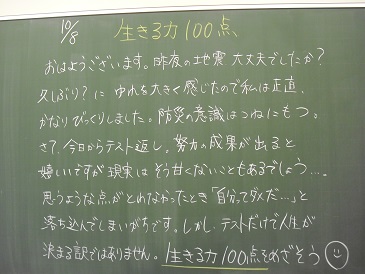 10/8
生きる力100点
おはようございます。昨夜の地震大丈夫でしたか？
久しぶり？にゆれを大きく感じたので私は正直、
かなりびっくりしました。防災の意識はつねにもつ。
さて、今日からテスト返し。努力の成果が出ると
嬉しいですが現実はそう甘くないこともあるでしょう…。
思うような点がとれなかったとき「自分ってダメだ…」と
落ち込んでしまいがちです。しかし、テストだけで人生が
決まる訳ではありません。生きる力100点をめざそう